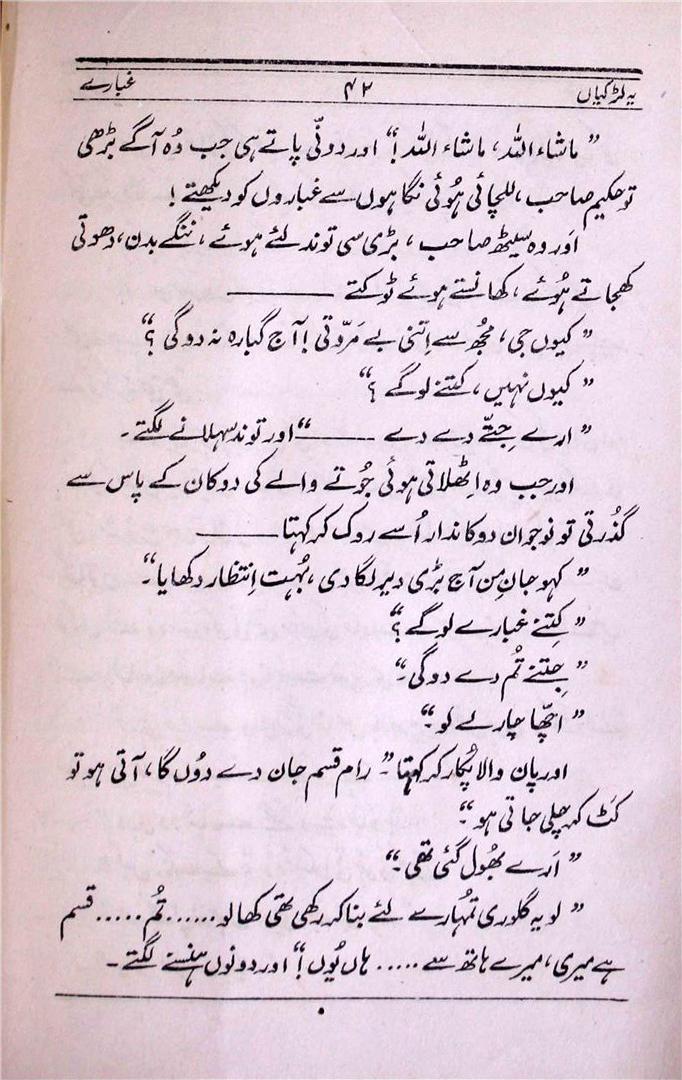 یہ لڑکیاں ۴۲ غبارے
”ماشاء اللہ، ماشاء اللہ!“ اور دونّی پاتے ہی جب وُہ آگے بڑھی
تو حکیم صاحب، للچائی ہُوئی نگاہوں سے غباروں کو دیکھتے!
اَور وہ سیٹھ صاحب، بڑی سی توند لئے ہوئے، ننگے بدن، دھوتی
کھجاتے ہُوئے، کھانستے ہوئے ٹوکتے ———
”کیوں جی، مجُھ سے اِتنی بے مَروّتی! آج گبارہ نہ دو گی؟“
”کیوں نہیں، کتنے لو گے؟“
”ارے جِتّے دے دے ———“ اور توند سہلانے لگتے۔
اور جب وہ اِٹھلاتی ہوئی جُوتے والے کی دوکان کے پاس سے
گذُرتی تو نوجوان دوکاندار اُسے روک کر کہتا ———
”کہو جانِ من آج بڑی دیر لگا دی، بہُت اِنتظار دکھایا“۔
”کِتنے غبارے لو گے؟“
”جِتنے تُم دے دو گی۔“
”اچّھا چار لے لو“
اور پان والا پُکار کر کہتا۔ ”رام قسم جان دے دوُں گا، آتی ہو تو
کَٹ کہ چلی جاتی ہو“۔
”اَرے بھُول گئی تھی۔“
”لو یہ گلوری تمہُارے لئے بنا کر رکھی تھی کھا لو...... تُم ..... قسم
ہے میری، میرے ہاتھ سے ..... ہاں یُوں!“ اور دونوں ہنسنے لگتے۔